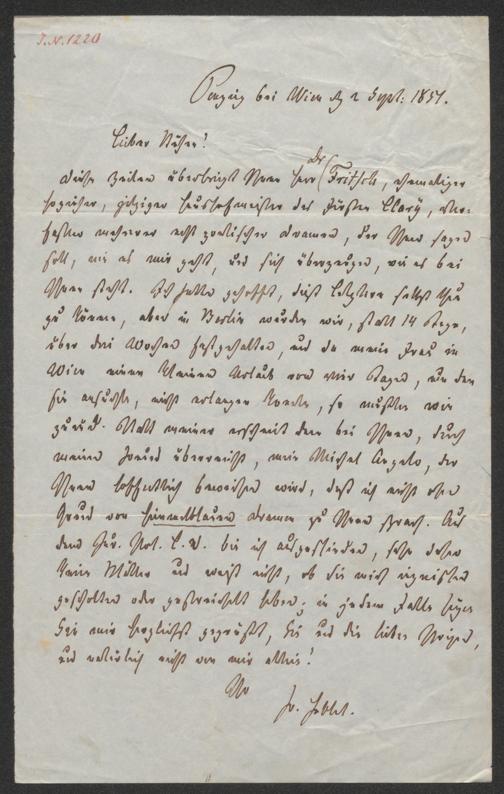 I.N. 1220
Penzing bei Wien d. 2 Sept: 1851.
Lieber Kühne!
Diese Zeilen überbringt Ihnen Herr Dr Fritsch, ehemaliger
Erzieher, jetziger Haushofmeister des Fürsten Clary, Ver-
fasser mehrerer echt poetischer Dramen, der Ihnen sagen
soll, wie es mir geht, und sich überzeugen, wie es bei
Ihnen steht. Ich hatte gehofft, dieß Letztere selbst thun
zu können, aber in Berlin wurden wir, statt 14 Tage,
über drei Wochen festgehalten, und da meine Frau in
Wien einen kleinen Urlaub von vier Tagen, um den
sie ansuchte, nicht erlangen konnte, so mußten wir
zurück. Statt meiner erscheint denn bei Ihnen, durch
meinen Freund überreicht, mein Michel Angelo, der
Ihnen hoffentlich beweisen wird, daß ich nicht ohne
Grund von himmelblauen Dramen zu Ihnen sprach. Aus
dem
bin ich ausgeschieden, habe daher
keine Blätter und weiß nicht, ob Sie mich inzwischen
gescholten oder gestreichelt haben; in jedem Falle seyen
Sie mir herzlichst gegrüßt, Sie und die lieben Ihrigen,
und natürlich nicht von mir allein!
Ihr
Fr. Hebbel.